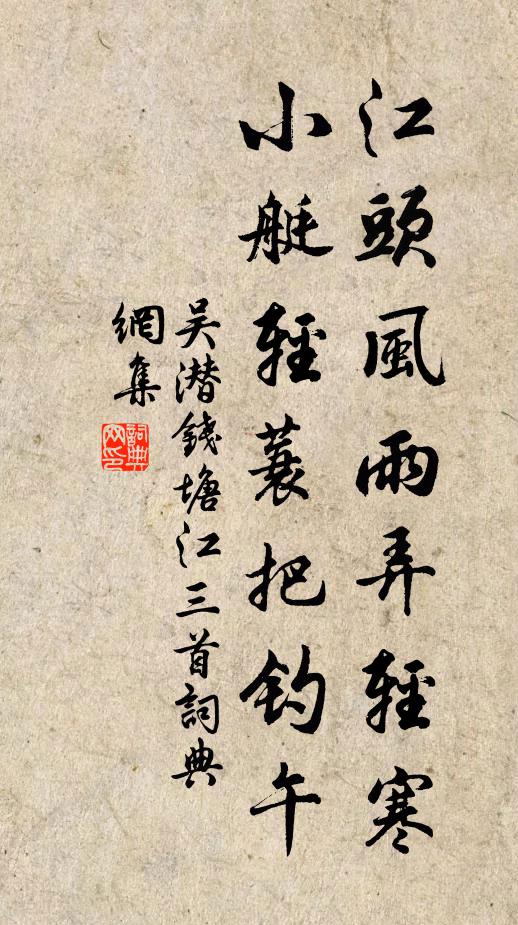 江頭風雨弄輕寒
小艇輕蓑把釣午
吴潜錢塘江三首詞典
網集
詞典網印